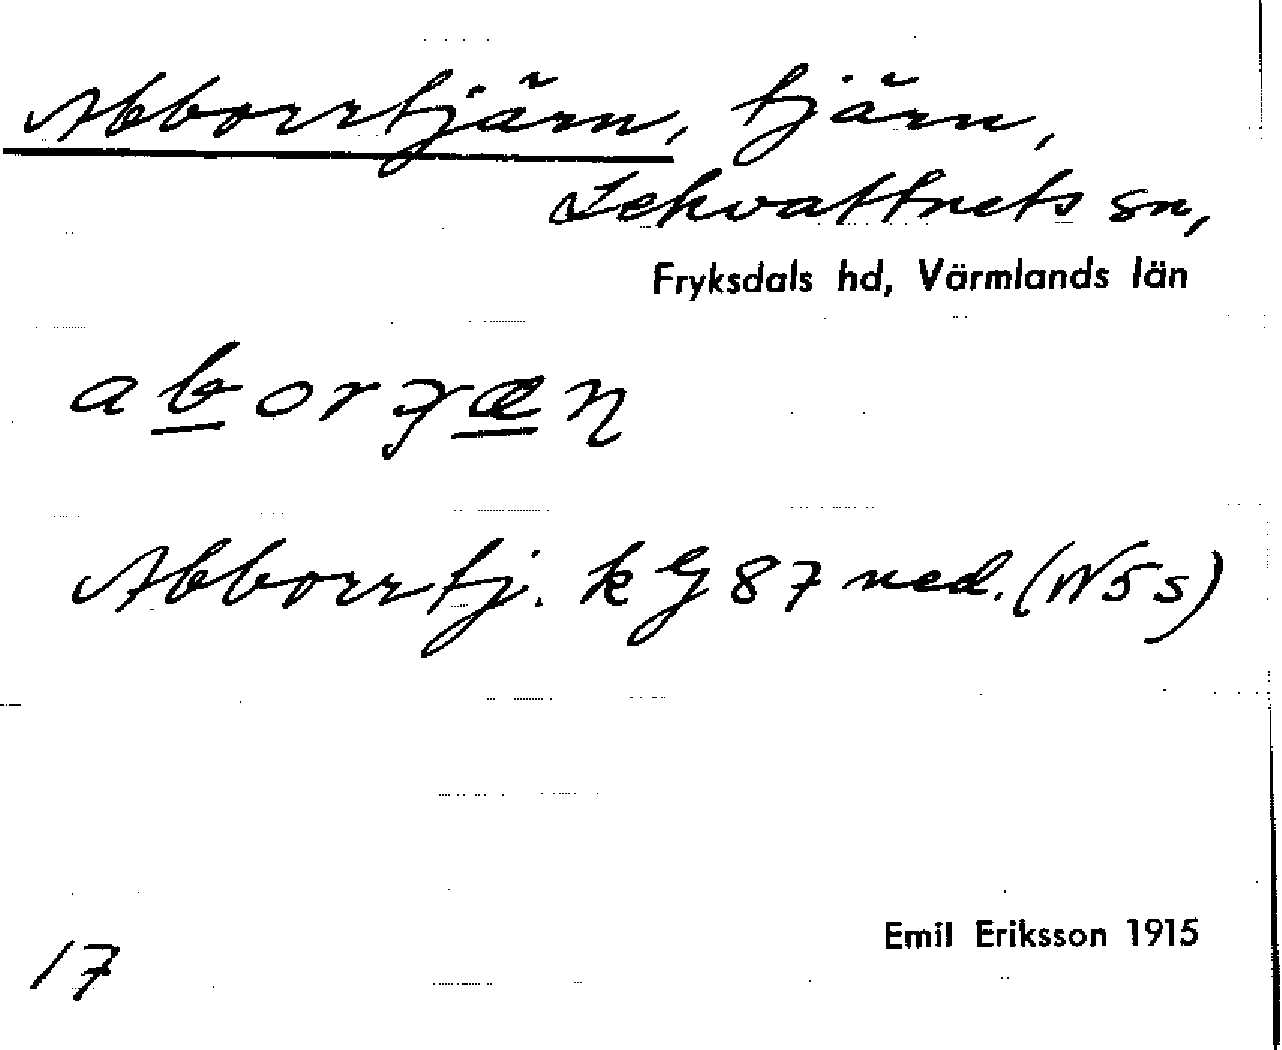 Abborrtjärn, tjärn,
Lekvattnets sn,
Fryksdals hd, Värmlands län
Abborrtj. kG 87 ned. (N5s)
Emil Eriksson 1915
17